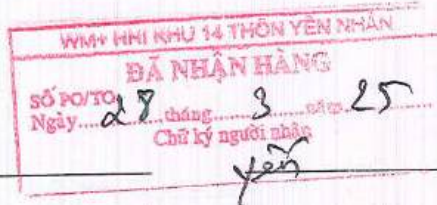 WM+ HNI KHU 14 THÔN YÊN NHÂN
ĐÃ NHẬN HÀNG
SỐ PO/TO
Ngày.....28.....tháng.....3.....năm...25.....
Chữ ký người nhận
yến